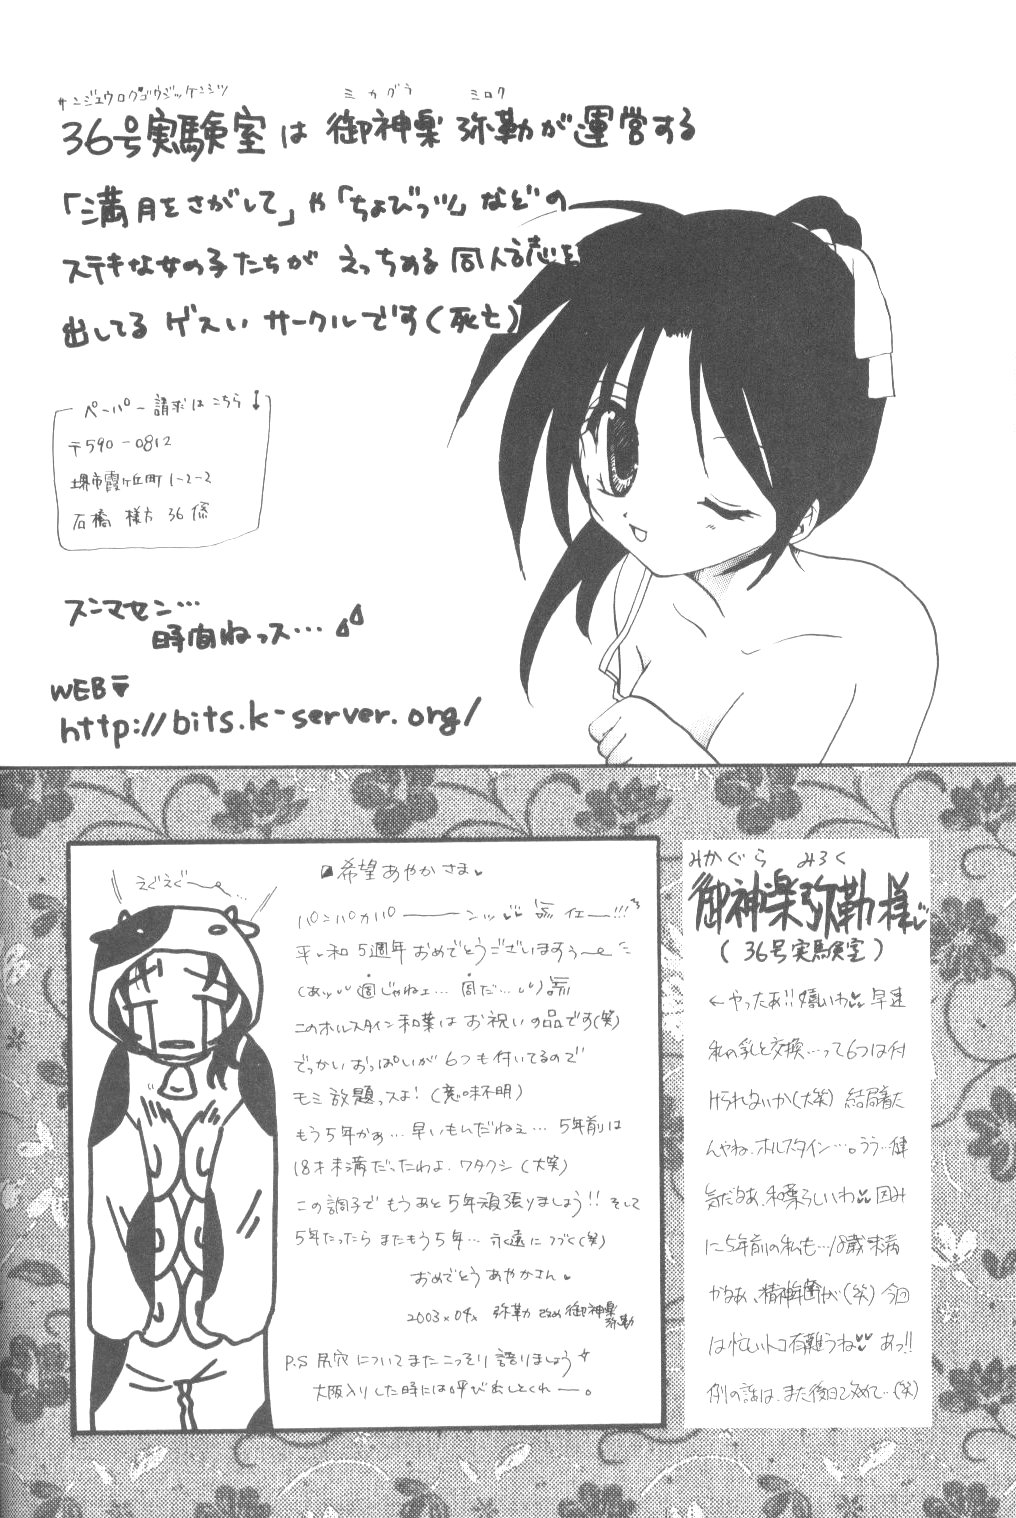 サンジュウロクゴウジッケンシツ ミカグラ ミロク
36号実験室は 御神楽 弥勒が運営する
「満月をさがして」や「ちょびっツ」などの
ステキな女の子たちが えっちめる同人誌を
出してる ゲスい サークルです(死亡)
ペーパー請求はこちら↓
〒590-0812
堺市霞ヶ丘町1-2-2
石橋 様方 36係
スンマセン…
時間ねっス…
WEB
http://bits.k-server.org/
えぐえぐ〜…
希望あやかさま
パンパカパーーンッ イエー!!!
平和5週年おめでとうございますぅ〜
(あッ 週じゃねェ… 周だ…)
このホルスタイン和葉はお祝いの品です(笑)
でっかいおっぱいが6つも付いてるので
モミ放題っスよ!(意味不明)
もう5年かぁ… 早いもんだねぇ… 5年前は
18才未満だったわよ、ワタクシ(大笑)
この調子でもうあと5年頑張りましょう!! そして
5年たったらまたもう5年… 永遠につづく(笑)
おめでとうあやかさん
2003×04× 弥勒 改め御神楽弥勒
P.S 尻穴についてまたこっそり語りましょう
大阪入りした時には呼び出しとくれー。
みかぐら みろく
御神楽弥勒様
(36号実験室)
←やったあ!! 嬉しいわ 早速
私の乳と交換…って6つは付
けられないか(大笑) 結局着た
んやね、ホルスタイン…。うう…健
気だなあ、和葉らしいわ 因み
に5年前の私も…18歳未満
かなあ、精神年齢が(笑) 今回
は忙しいトコ有難うね あっ!!
例の話は、また後日で改めて…(笑)